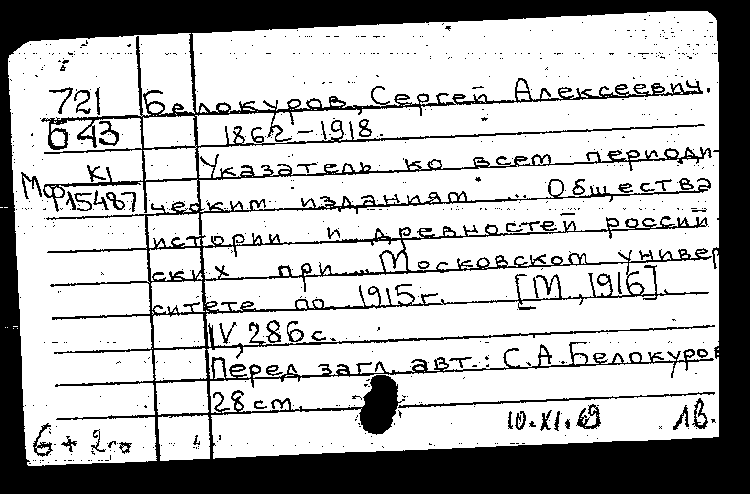 721 Белокуров, Сергей Алексеевич.
Б43 1862–1918.
К1 Указатель ко всем периоди-
Мф15487 ческим изданиям ... Общества
истории и древностей россий-
ских при ... Московском универ
ситете по 1915г. [М., 1916].
IV, 286 с.
Перед загл. авт.: С.А.Белокуров
28 ст.
10.XI.69 ЛВ.